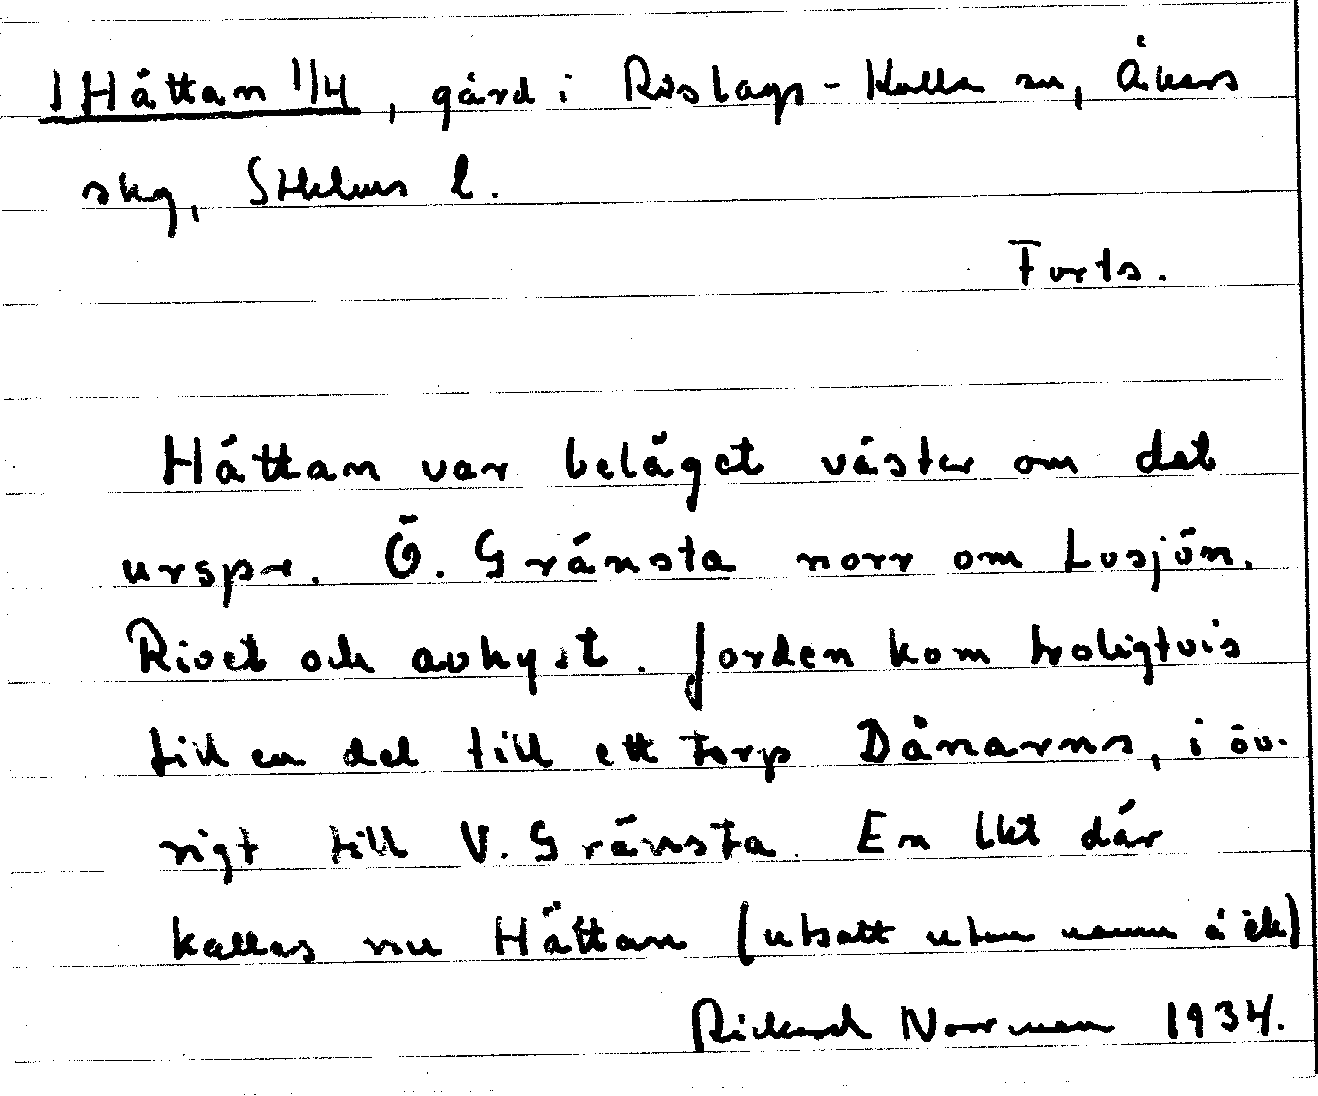 1 Hättan 1/4, gård i Röslags-Kulla sn, Åkers
skg, Sthlms l.
Forts.
Hättan var beläget väster om det
urspr. Ö. Gränsta norr om Losjön.
Rivet och avhyst. Jorden kom troligtvis
till en del till ett torp Dånarns, i öv-
rigt till V. Gränsta. En lht där
kallas nu Hättan (utsatt utan namn å ek)
Rickard Norrman 1934.